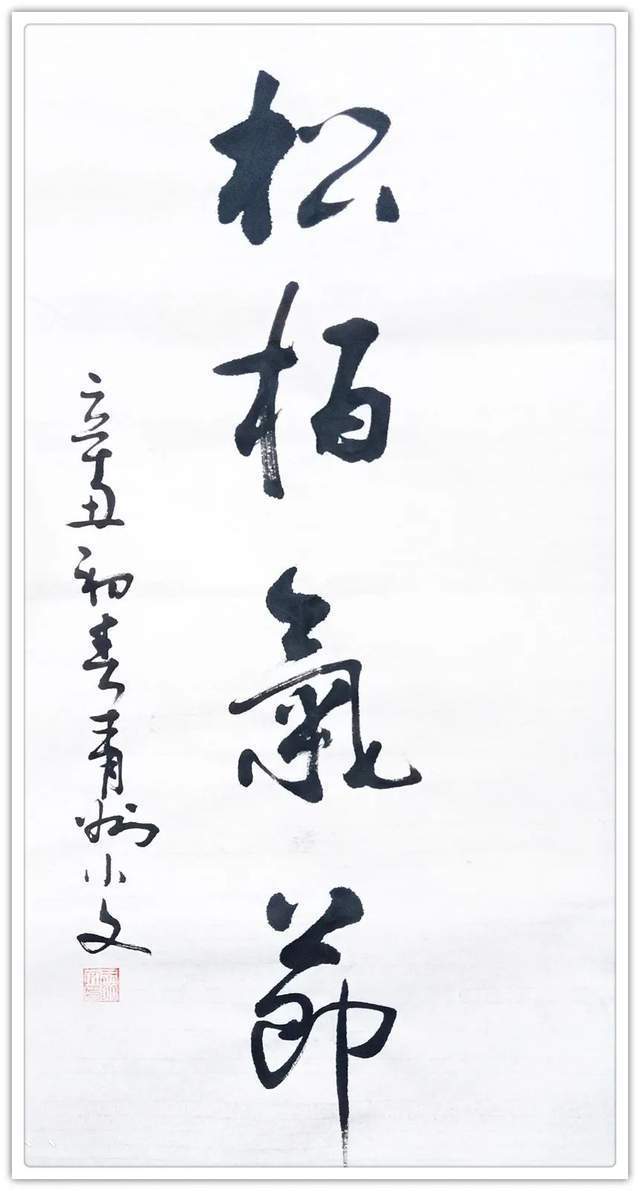 松柏氣節
辛丑初春青州小文